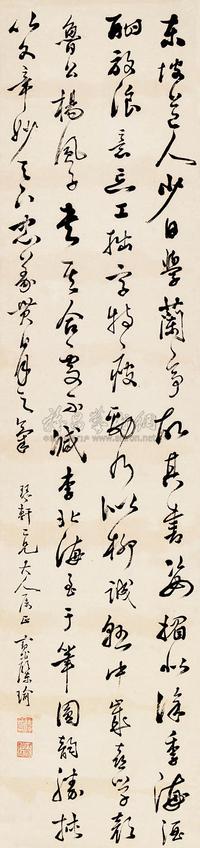 東坡道人少日學蘭亭故其書姿媚似徐季海酒
酣放浪意忘工拙字特瘦勁乃似柳誠懸中歲喜學顏
魯公楊風子書其合處不減李北海至于筆圓韻勝挾
以文章妙天下忠義貫日月之氣
軒二兄大人屬正